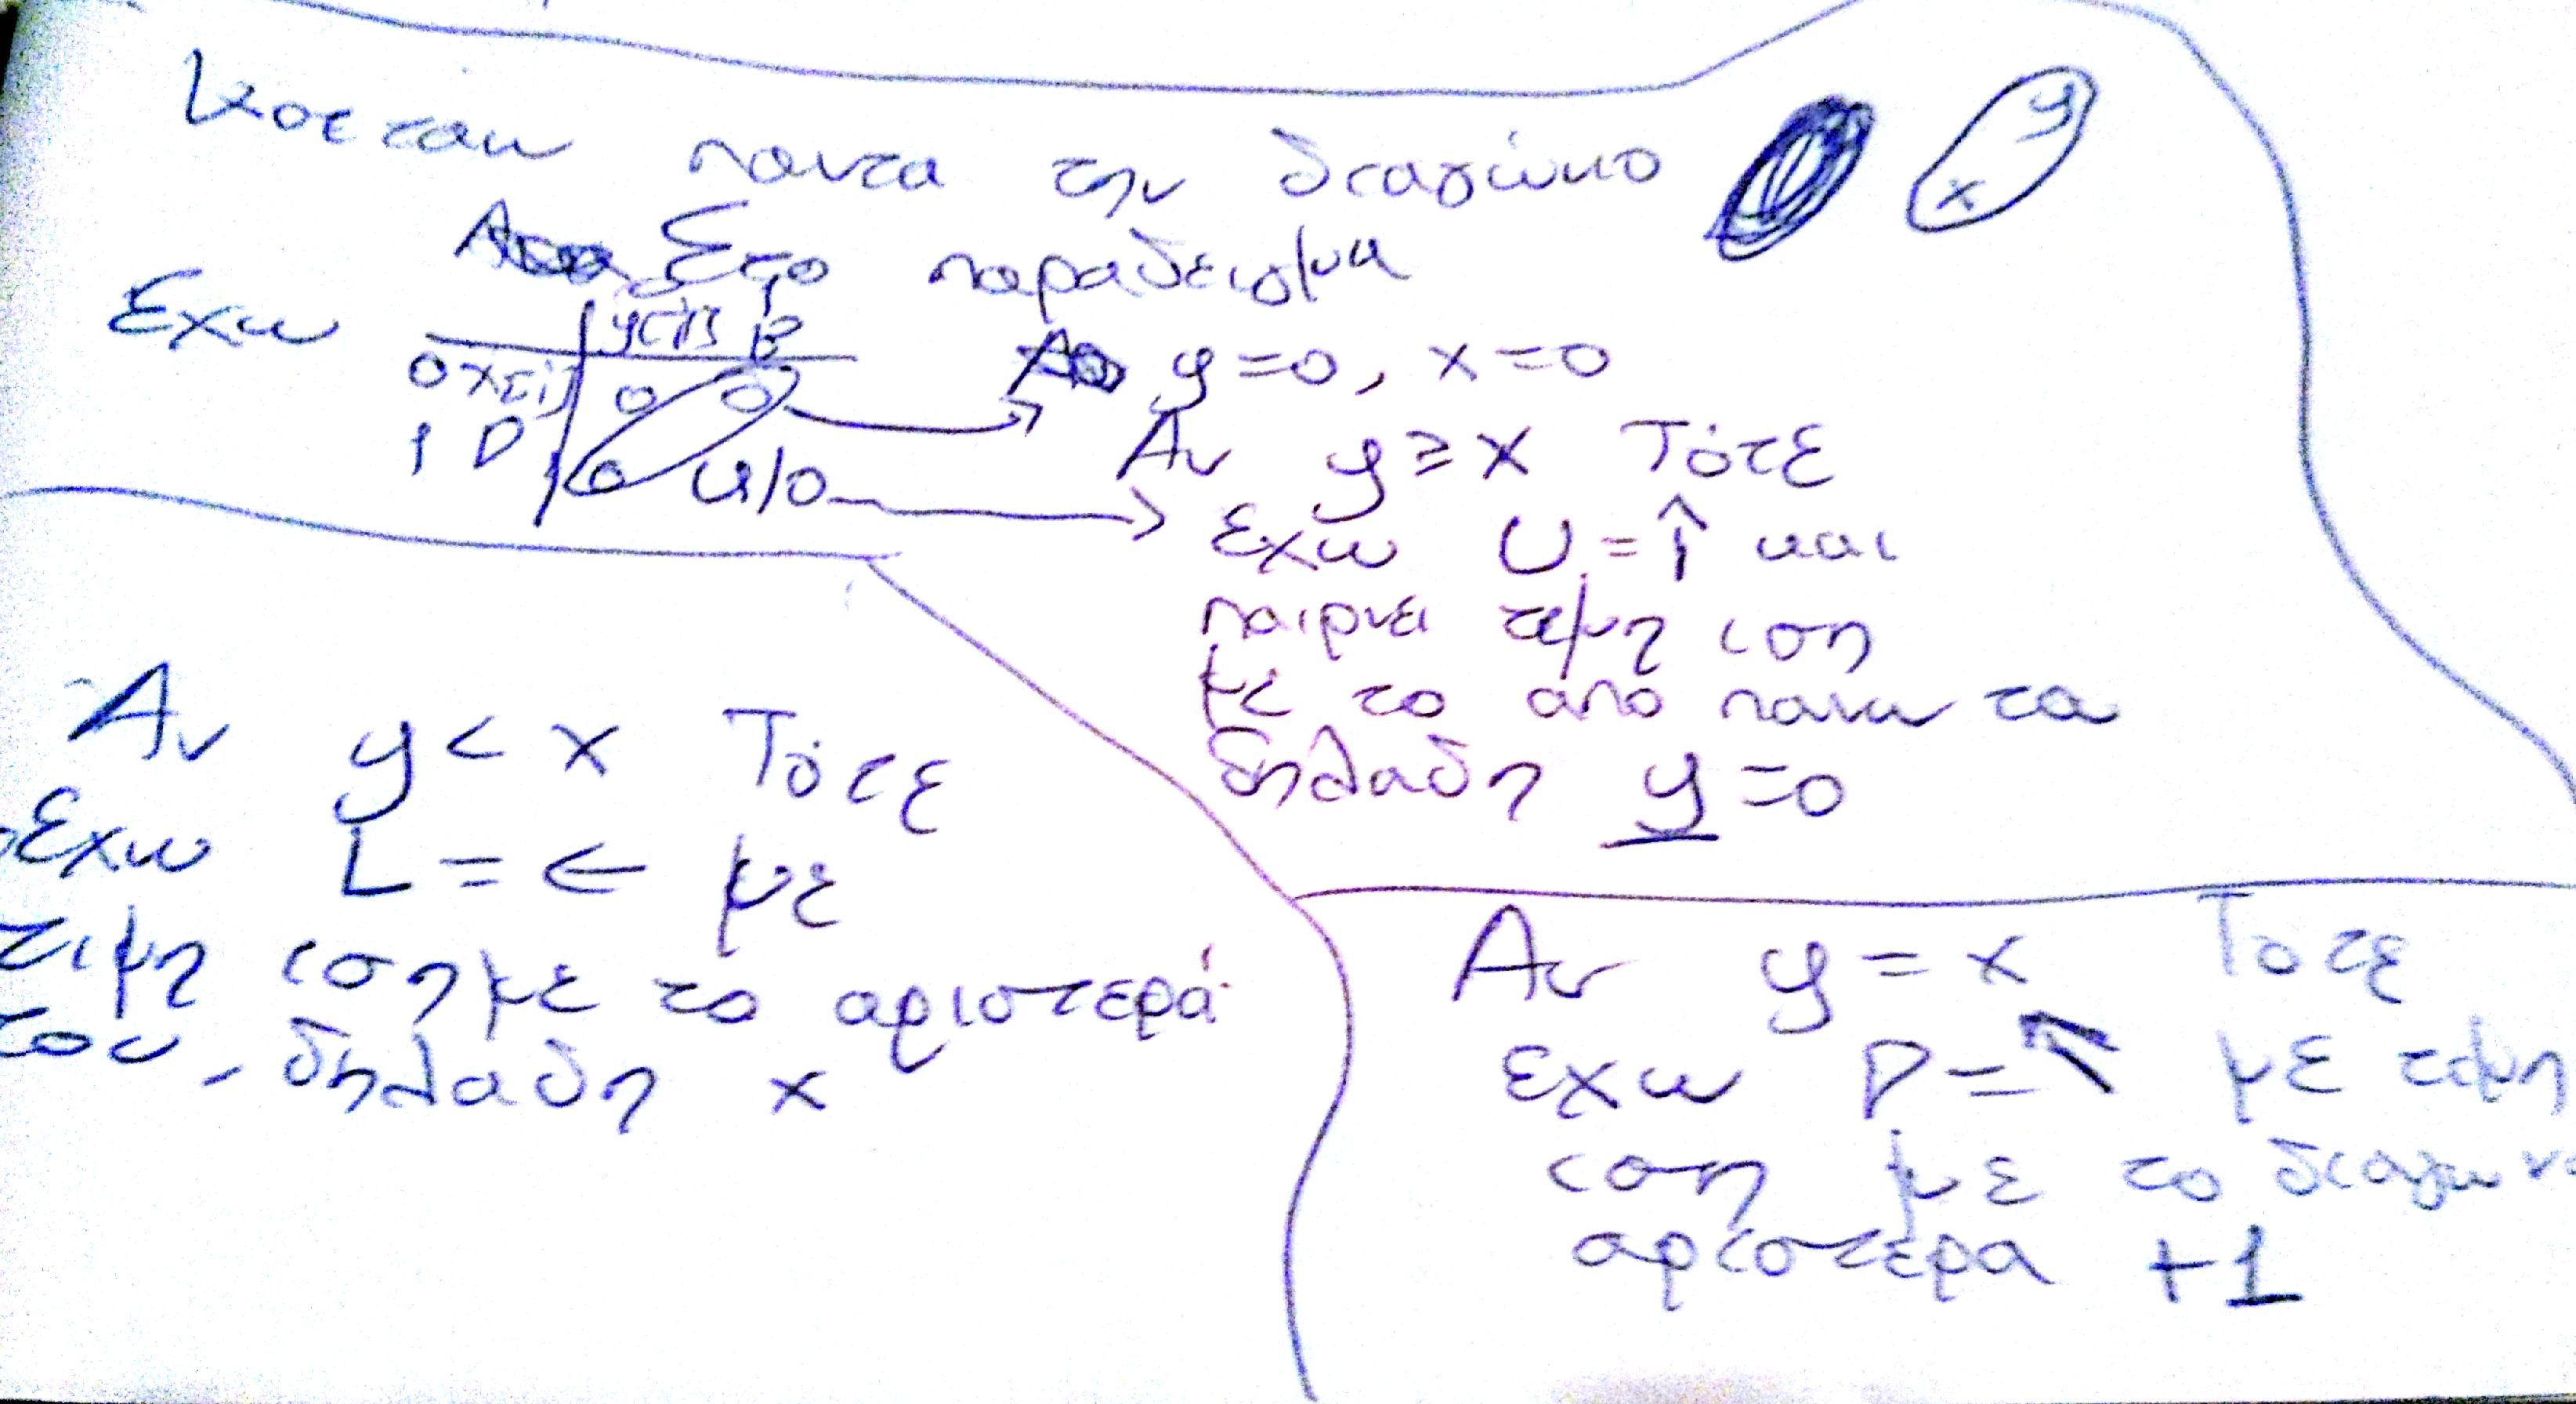 Κοιταω παντα την διαγώνιο
y
x
Στο παραδειγμα
Εχω
y[j] B
0 x[i] 0 0
1 D 0 U/0
y=0, x=0
Αν y ≥ x Τότε
εχω U = ↑ και
παιρνει τιμη ιση
με το απο πανω τα
δηλαδη y=0
Αν y < x Τότε
Εχω L = ← με
τιμη ιση με το αριστερά
του, δηλαδη x
Αν y = x Τοτε
εχω D = ↖ με τιμη
ιση με το διαγωνι
αριστερα +1